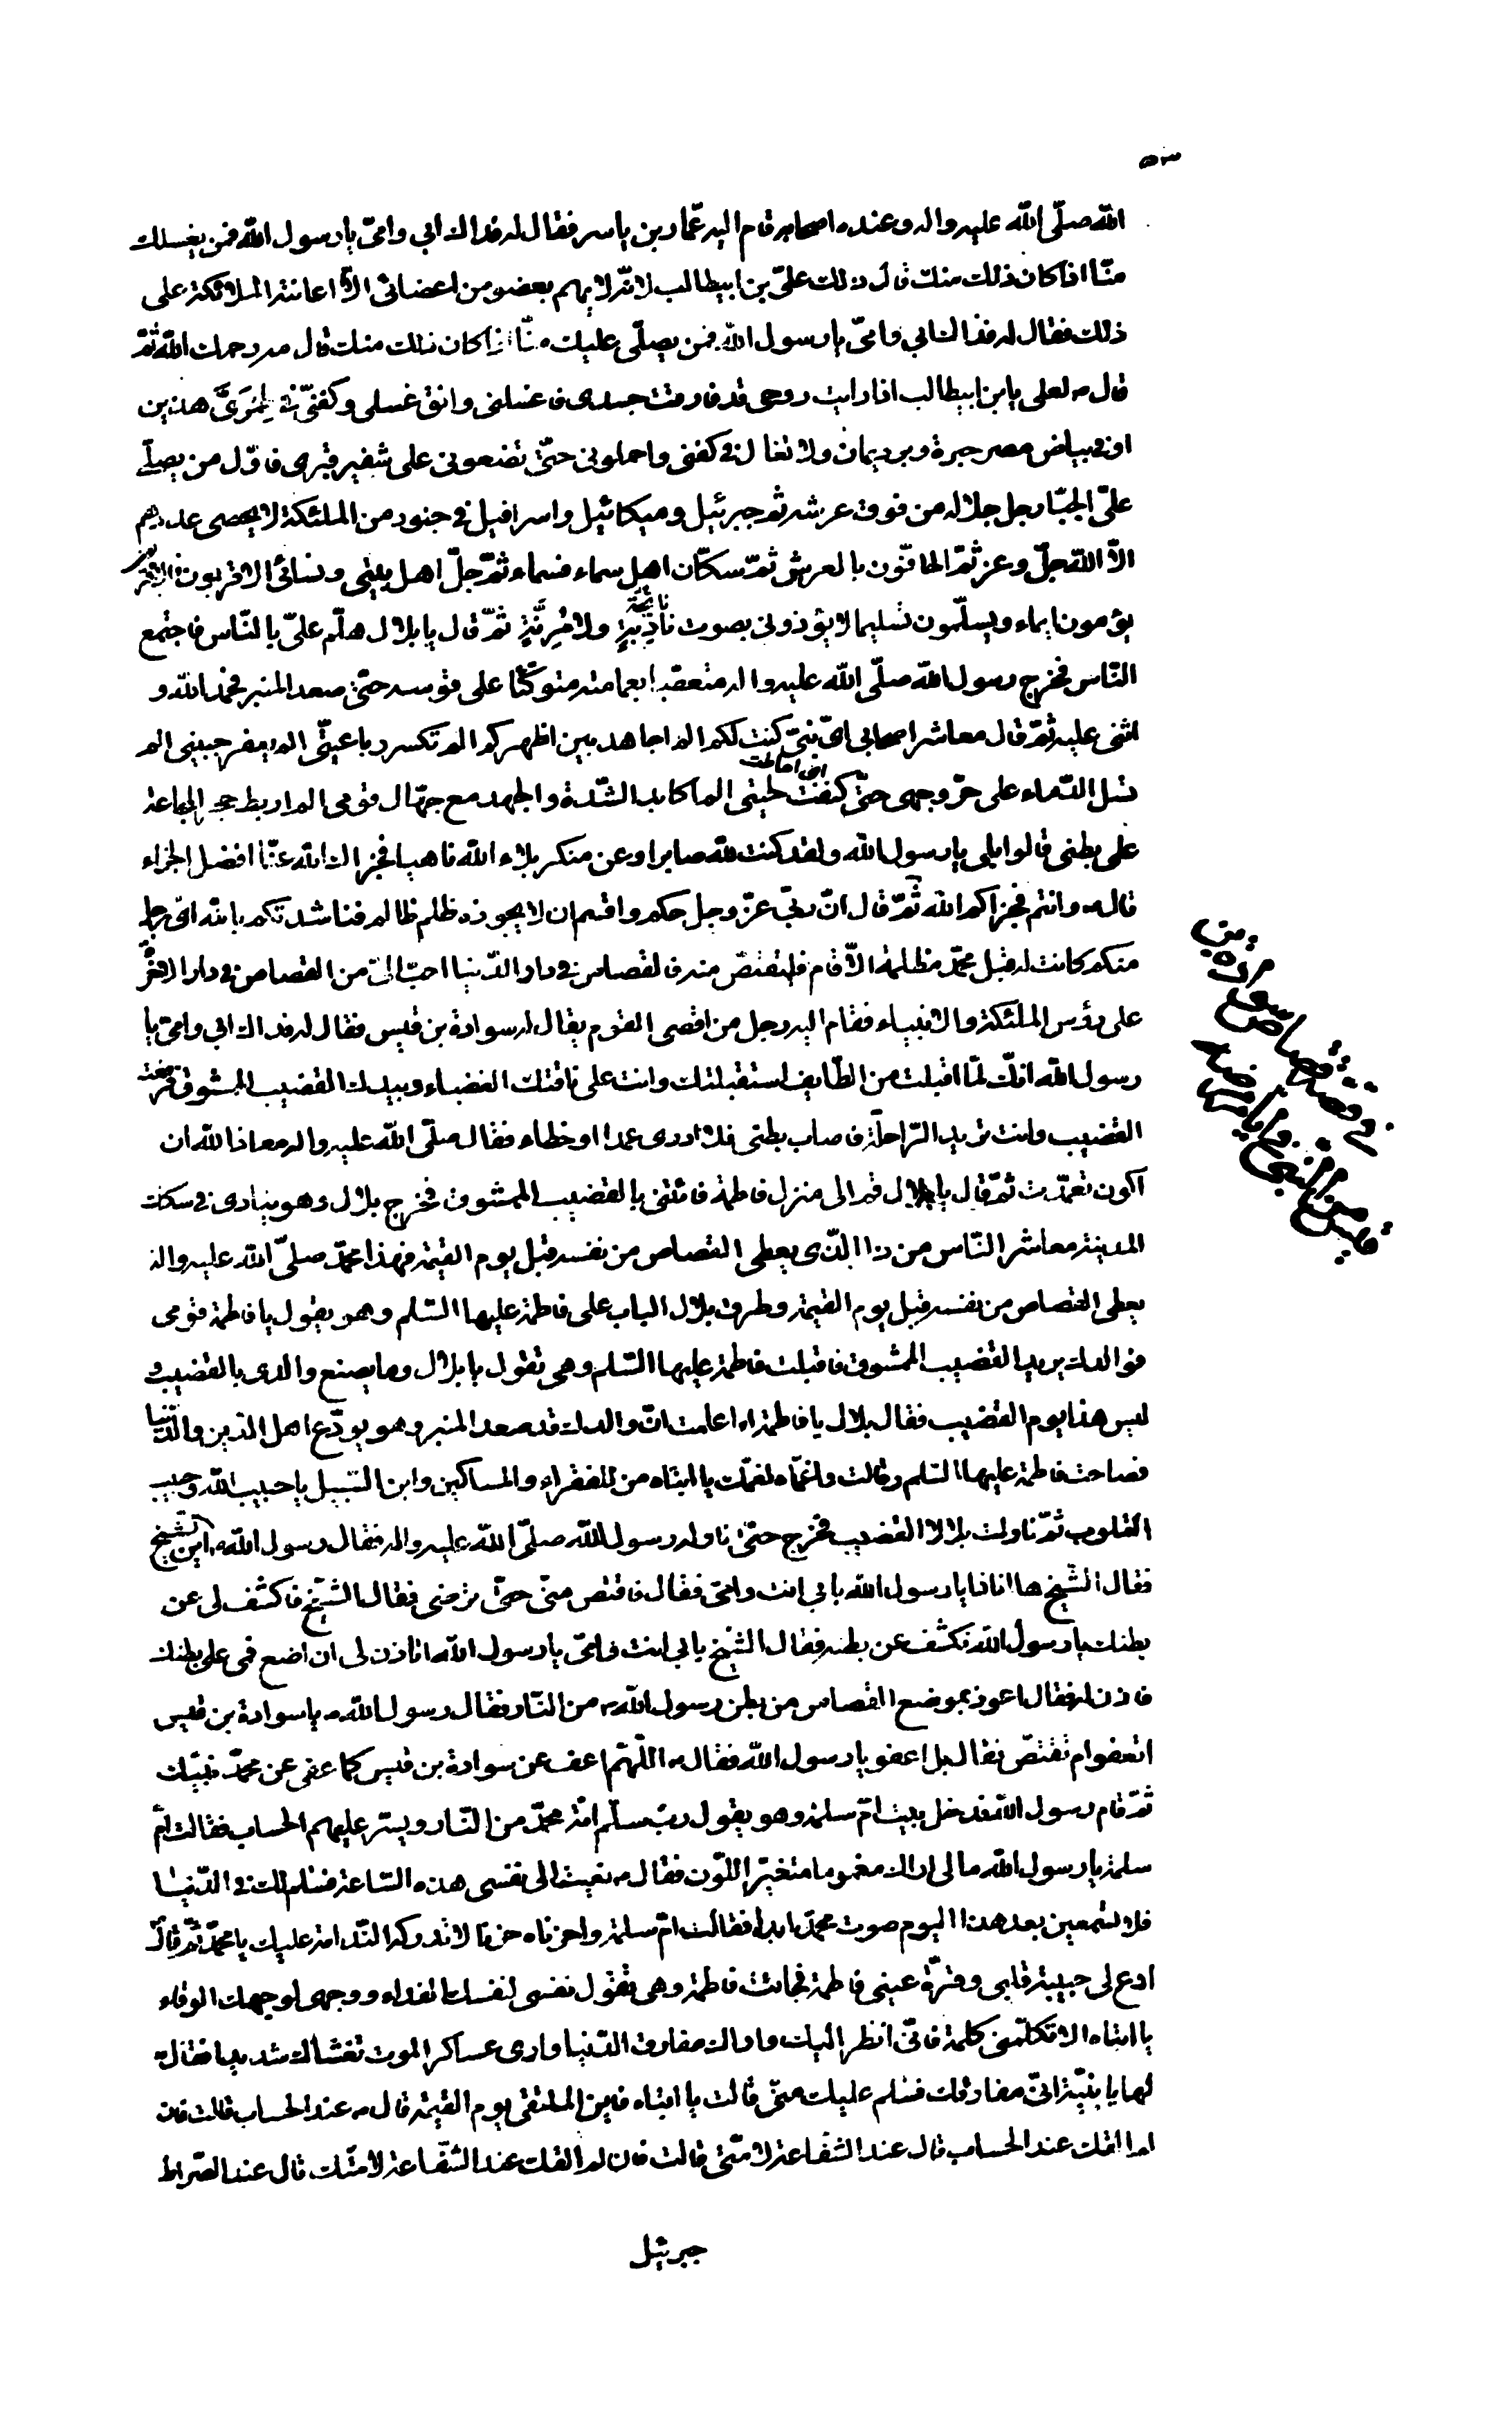 الله صلّى الله عليه واله وعنده اصحابه قام اليه عمّار بن ياسر فقال له فداك ابي وامّي يا رسول الله فمن يغسلك
منّا اذا كان ذلك منك قال ذلك علىّ بن ابيطالب لانّه لا يهم بعضو من اعضائى الاّ اعانته الملائكة على
ذلك فقال له فداك ابي وامّي يا رسول الله فمن يصلّى عليك منّا اذا كان ذلك منك قال مه رحمك الله ثمّ
قال لعلى يا بن ابيطالب اذا رايت روحى قد فارقت جسدى فاغسلنى وانق غسلى وكفنّى فى طمرىّ هذين
او فى بياض مصر حبرة وبرد يمان ولا تغال فى كفنى واحملونى حتّى تضعونى على شفير قبرى فاوّل من يصلّى
علىّ الجبّار جل جلاله من فوق عرشه ثم جبرئيل وميكائيل واسرافيل فى جنود من الملئكة لا يحصى عددهم
الاّ الله جلّ وعز ثمّ الحافّون بالعرش ثمّ سكّان اهل سماء فسماء ثمّ جلّ اهل بيتى ونسائى الاقربون فالاقربون
يؤمون ايماء ويسلّمون تسليما لا يؤذونى بصوت نادبة نائحة ولا مرنّة ثمّ قال يا بلال هلّم علىّ بالنّاس فاجتمع
النّاس فخرج رسول الله صلّى الله عليه واله متعصّبا بعمامته متوكّئا على قوسه حتّى صعد المنبر فحمد الله و
اثنى عليه ثمّ قال معاشر اصحابى اىّ نبىّ كنت لكم الم اجاهد بين اظهركم الم تكسر رباعيتى الم يعفر جبينى الم
تسل الدّماء على حرّ وجهى حتّى كنفت لحيتى الم اكابد الشّدة والجهد مع جهّال قومى الم اربط حجر المجاعة
على بطنى قالوا بلى يا رسول الله ولقد كنت لله صابرا وعن منكر بلاء الله ناهيا فجزاك الله عنّا افضل الجزاء
قال وانتم فجزاكم الله ثمّ قال انّ ربّى عزّ وجل حكم واقسم ان لا يجوزه ظلم ظالم فناشدتكم بالله اىّ رجل
منكم كانت له قبل محمّد مظلمة الاّ قام فليقتصّ منه فالقصاص فى دار الدّنيا احبّ الىّ من القصاص فى دار الاخرة
على رؤس الملئكة والانبياء فقام اليه رجل من اقصى القوم يقال له سوادة بن قيس فقال له فداك ابي وامّي يا
رسول الله انّك لمّا اقبلت من الطّايف استقبلتك وانت على ناقتك العضباء وبيدك القضيب الممشوق فرفعت
القضيب وانت تريد الرّاحلة فاصاب بطنى فلا ادرى عمدا او خطاء فقال صلّى الله عليه واله معاذ الله ان
اكون تعمّدت ثمّ قال يا بلال قم الى منزل فاطمة فائتنى بالقضيب الممشوق فخرج بلال وهو ينادى فى سكك
المدينة معاشر النّاس من ذا الّذى يعطى القصاص من نفسه قبل يوم القيمة فهذا محمّد صلّى الله عليه واله
يعطى القصاص من نفسه قبل يوم القيمة وطرق بلال الباب على فاطمة عليها السّلم وهو يقول يا فاطمة قومى
فوالدك يريد القضيب الممشوق فاقبلت فاطمة عليها السّلم وهى تقول يا بلال وما يصنع والدى بالقضيب و
ليس هذا يوم القضيب فقال بلال يا فاطمة اما علمت انّ والدك قد صعد المنبر وهو يودّع اهل الدّين والدّنيا
فصاحت فاطمة عليها السّلم وقالت واغمّاه لغمّك يا ابتاه من للفقراء والمساكين وابن السّبيل يا حبيب الله وحبيب
القلوب ثمّ ناولت بلالا القضيب فخرج حتّى ناوله رسول الله صلّى الله عليه واله فقال رسول الله اين الشّيخ
فقال الشّيخ ها انا ذا يا رسول الله بابي انت وامّى فقال فاقتص منّى حتّى ترضى فقال الشّيخ فاكشف لى عن
بطنك يا رسول الله فكشف عن بطنه فقال الشّيخ بابي انت وامّى يا رسول الله اتاذن لى ان اضع فمى على بطنك
فاذن له فقال اعوذ بموضع القصاص من بطن رسول الله من النّار فقال رسول الله يا سوادة بن قيس
اتعفو ام تقتصّ فقال بل اعفو يا رسول الله فقال اللّهمّ اعف عن سوادة بن قيس كما عفى عن محمّد نبيّك
ثمّ قام رسول الله فدخل بيت امّ سلمة وهو يقول ربّ سلّم امّة محمّد من النّار ويسّر عليهم الحساب فقالت امّ
سلمة يا رسول الله ما لى اراك مغموما متغيّر اللّون فقال نعيت الى نفسى هذه السّاعة فسلم لك فى الدّنيا
فلا تسمعين بعد هذا اليوم صوت محمّد ابدا فقالت امّ سلمة واحزناه حزنا لا تدركه النّدامة عليك يا محمّد ثمّ قال
ادع لى حبيبة قلبى وقرّة عينى فاطمة فجائت فاطمة وهى تقول نفسى لنفسك الفداء ووجهى لوجهك الوقاء
يا ابتاه الا تكلّمنى كلمة فانّى انظر اليك واراك مفارق الدّنيا وارى عساكر الموت تغشاك شديدا فقال
لها يا بنيّة انّى مفارقك فسلم عليك منّى قالت يا ابتاه فاين الملتقى يوم القيمة قال عند الحساب قالت فان
لم القك عند الحساب قال عند الشّفاعة لامّتى قالت فان لم القك عند الشّفاعة لامّتك قال عند الصّراط
جبرئيل